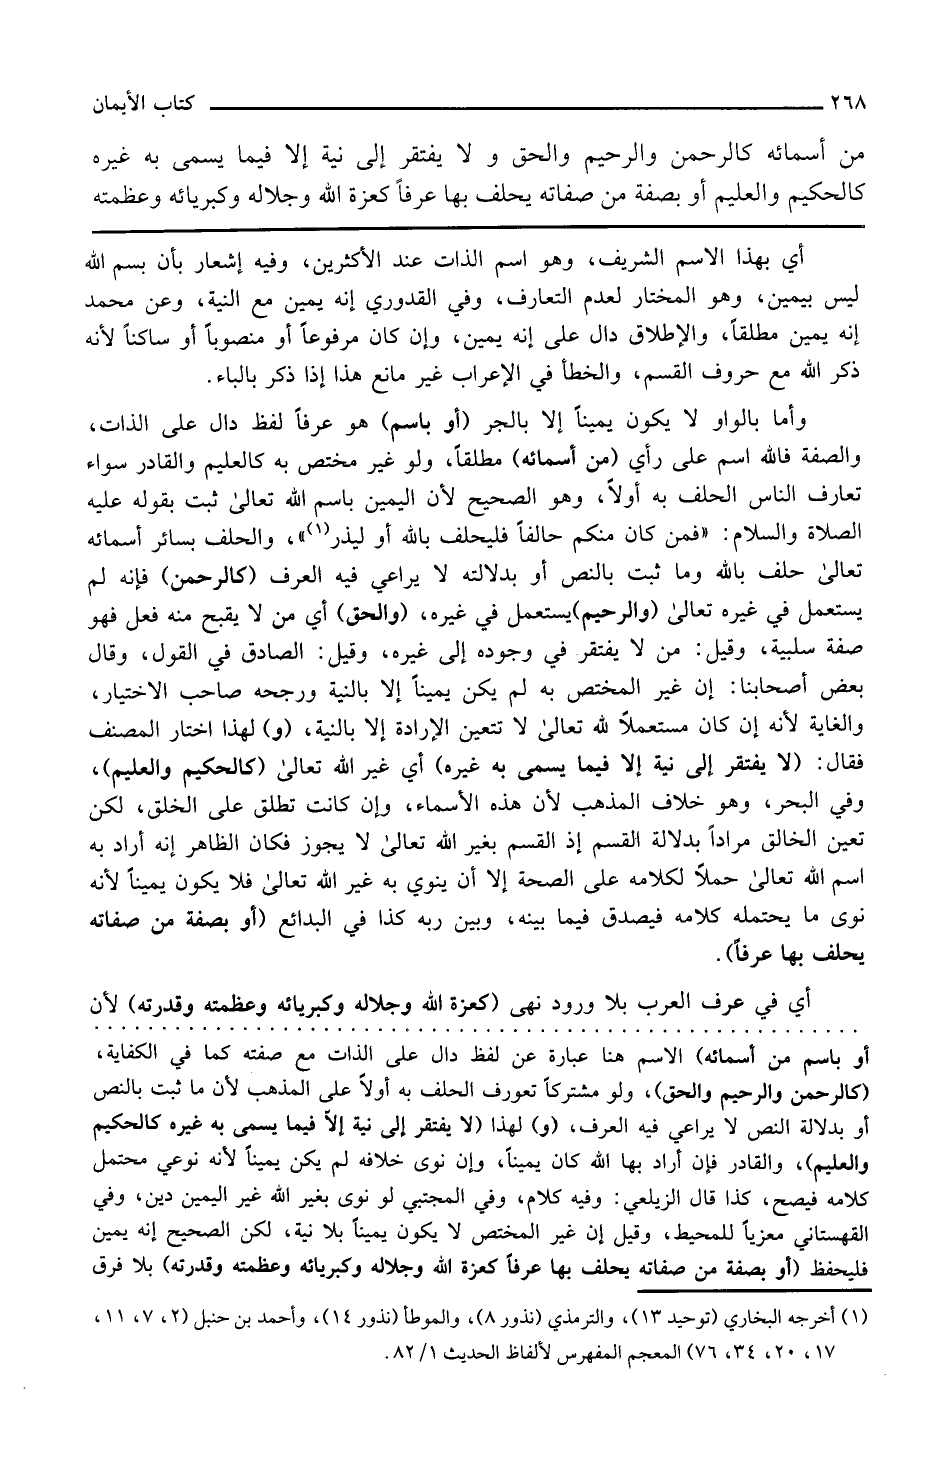 ٢٦٨ كتاب الأيمان
من أسمائه كالرحمن والرحيم والحق و لا يفتقر إلى نية إلا فيما يسمى به غيره
كالحكيم والعليم أو بصفة من صفاته يحلف بها عرفاً كعزة الله وجلاله وكبريائه وعظمته
أي بهذا الاسم الشريف، وهو اسم الذات عند الأكثرين، وفيه إشعار بأن بسم الله
ليس بيمين، وهو المختار لعدم التعارف، وفي القدوري إنه يمين مع النية، وعن محمد
إنه يمين مطلقاً، والإطلاق دال على إنه يمين، وإن كان مرفوعاً أو منصوباً أو ساكناً لأنه
ذكر الله مع حروف القسم، والخطأ في الإعراب غير مانع هذا إذا ذكر بالباء.
وأما بالواو لا يكون يميناً إلا بالجر (أو باسم) هو عرفاً لفظ دال على الذات،
والصفة فالله اسم على رأي (من أسمائه) مطلقاً، ولو غير مختص به كالعليم والقادر سواء
تعارف الناس الحلف به أولاً، وهو الصحيح لأن اليمين باسم الله تعالىٰ ثبت بقوله عليه
الصلاة والسلام: «فمن كان منكم حالفاً فليحلف بالله أو ليذر(١)»، والحلف بسائر أسمائه
تعالىٰ حلف بالله وما ثبت بالنص أو بدلالته لا يراعي فيه العرف (كالرحمن) فإنه لم
يستعمل في غيره تعالىٰ (والرحيم)يستعمل في غيره، (والحق) أي من لا يقبح منه فعل فهو
صفة سلبية، وقيل: من لا يفتقر في وجوده إلى غيره، وقيل: الصادق في القول، وقال
بعض أصحابنا: إن غير المختص به لم يكن يميناً إلا بالنية ورجحه صاحب الاختيار،
والغاية لأنه إن كان مستعملاً لله تعالىٰ لا تتعين الإرادة إلا بالنية، (و) لهذا اختار المصنف
فقال: (لا يفتقر إلى نية إلا فيما يسمى به غيره) أي غير الله تعالىٰ (كالحكيم والعليم)،
وفي البحر، وهو خلاف المذهب لأن هذه الأسماء، وإن كانت تطلق على الخلق، لكن
تعين الخالق مراداً بدلالة القسم إذ القسم بغير الله تعالىٰ لا يجوز فكان الظاهر إنه أراد به
اسم الله تعالىٰ حملاً لكلامه على الصحة إلا أن ينوي به غير الله تعالىٰ فلا يكون يميناً لأنه
نوى ما يحتمله كلامه فيصدق فيما بينه، وبين ربه كذا في البدائع (أو بصفة من صفاته
يحلف بها عرفاً).
أي في عرف العرب بلا ورود نهى (كعزة الله وجلاله وكبريائه وعظمته وقدرته) لأن
أو باسم من أسمائه) الاسم هنا عبارة عن لفظ دال على الذات مع صفته كما في الكفاية،
(كالرحمن والرحيم والحق)، ولو مشتركاً تعورف الحلف به أولاً على المذهب لأن ما ثبت بالنص
أو بدلالة النص لا يراعي فيه العرف، (و) لهذا (لا يفتقر إلى نية إلاّ فيما يسمى به غيره كالحكيم
والعليم)، والقادر فإن أراد بها الله كان يميناً، وإن نوى خلافه لم يكن يميناً لأنه نوعي محتمل
كلامه فيصح، كذا قال الزيلعي: وفيه كلام، وفي المجتبي لو نوى بغير الله غير اليمين دين، وفي
القهستاني معزياً للمحيط، وقيل إن غير المختص لا يكون يميناً بلا نية، لكن الصحيح إنه يمين
فليحفظ (أو بصفة من صفاته يحلف بها عرفاً كعزة الله وجلاله وكبريائه وعظمته وقدرته) بلا فرق
(١) أخرجه البخاري (توحيد ١٣)، والترمذي (نذور ٨)، والموطأ (نذور ١٤)، وأحمد بن حنبل (٢، ٧، ١١،
١٧، ٢٠، ٣٤، ٧٦) المعجم المفهرس لألفاظ الحديث ١/ ٨٢.